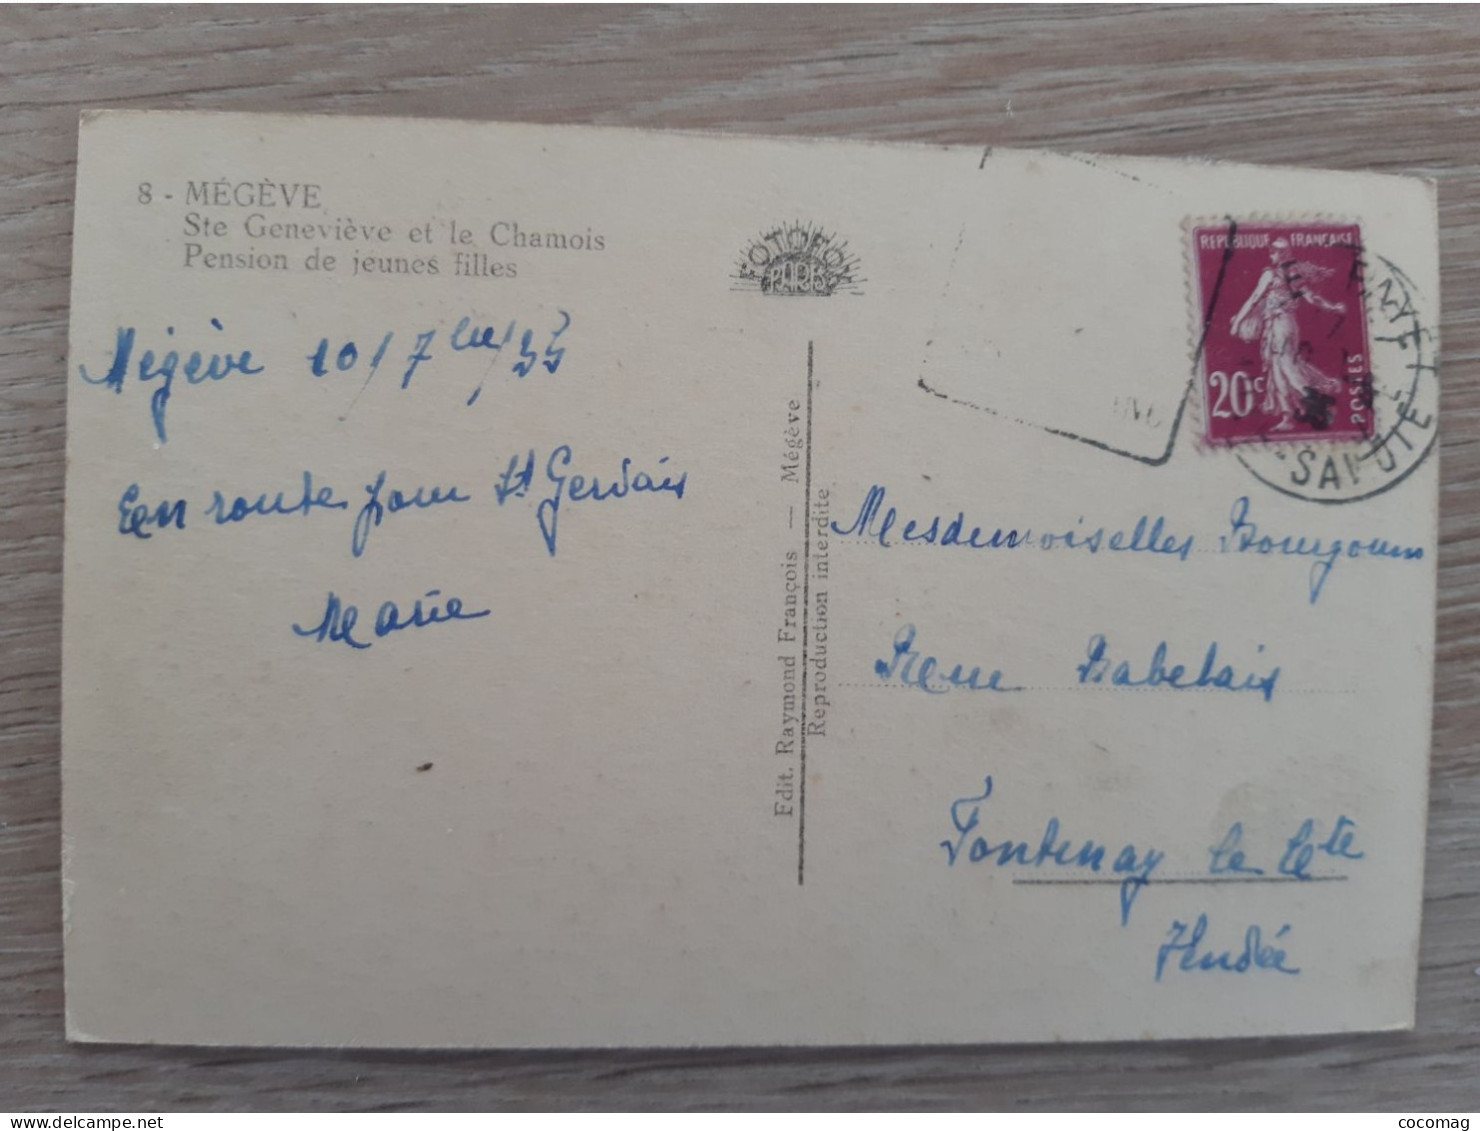 8 - MÉGÈVE
Ste Geneviève et le Chamois
Pension de jeunes filles
FOTOFON
PARIS
Mégève 10/7bre/35
En route pour St Gervais
Marie
Edit. Raymond François — Mégève
Reproduction interdite
REPUBLIQUE FRANÇAISE
20c
POSTES
Mesdemoiselles
Rue Rabelais
Fontenay le Cte
Vendée
cocomag